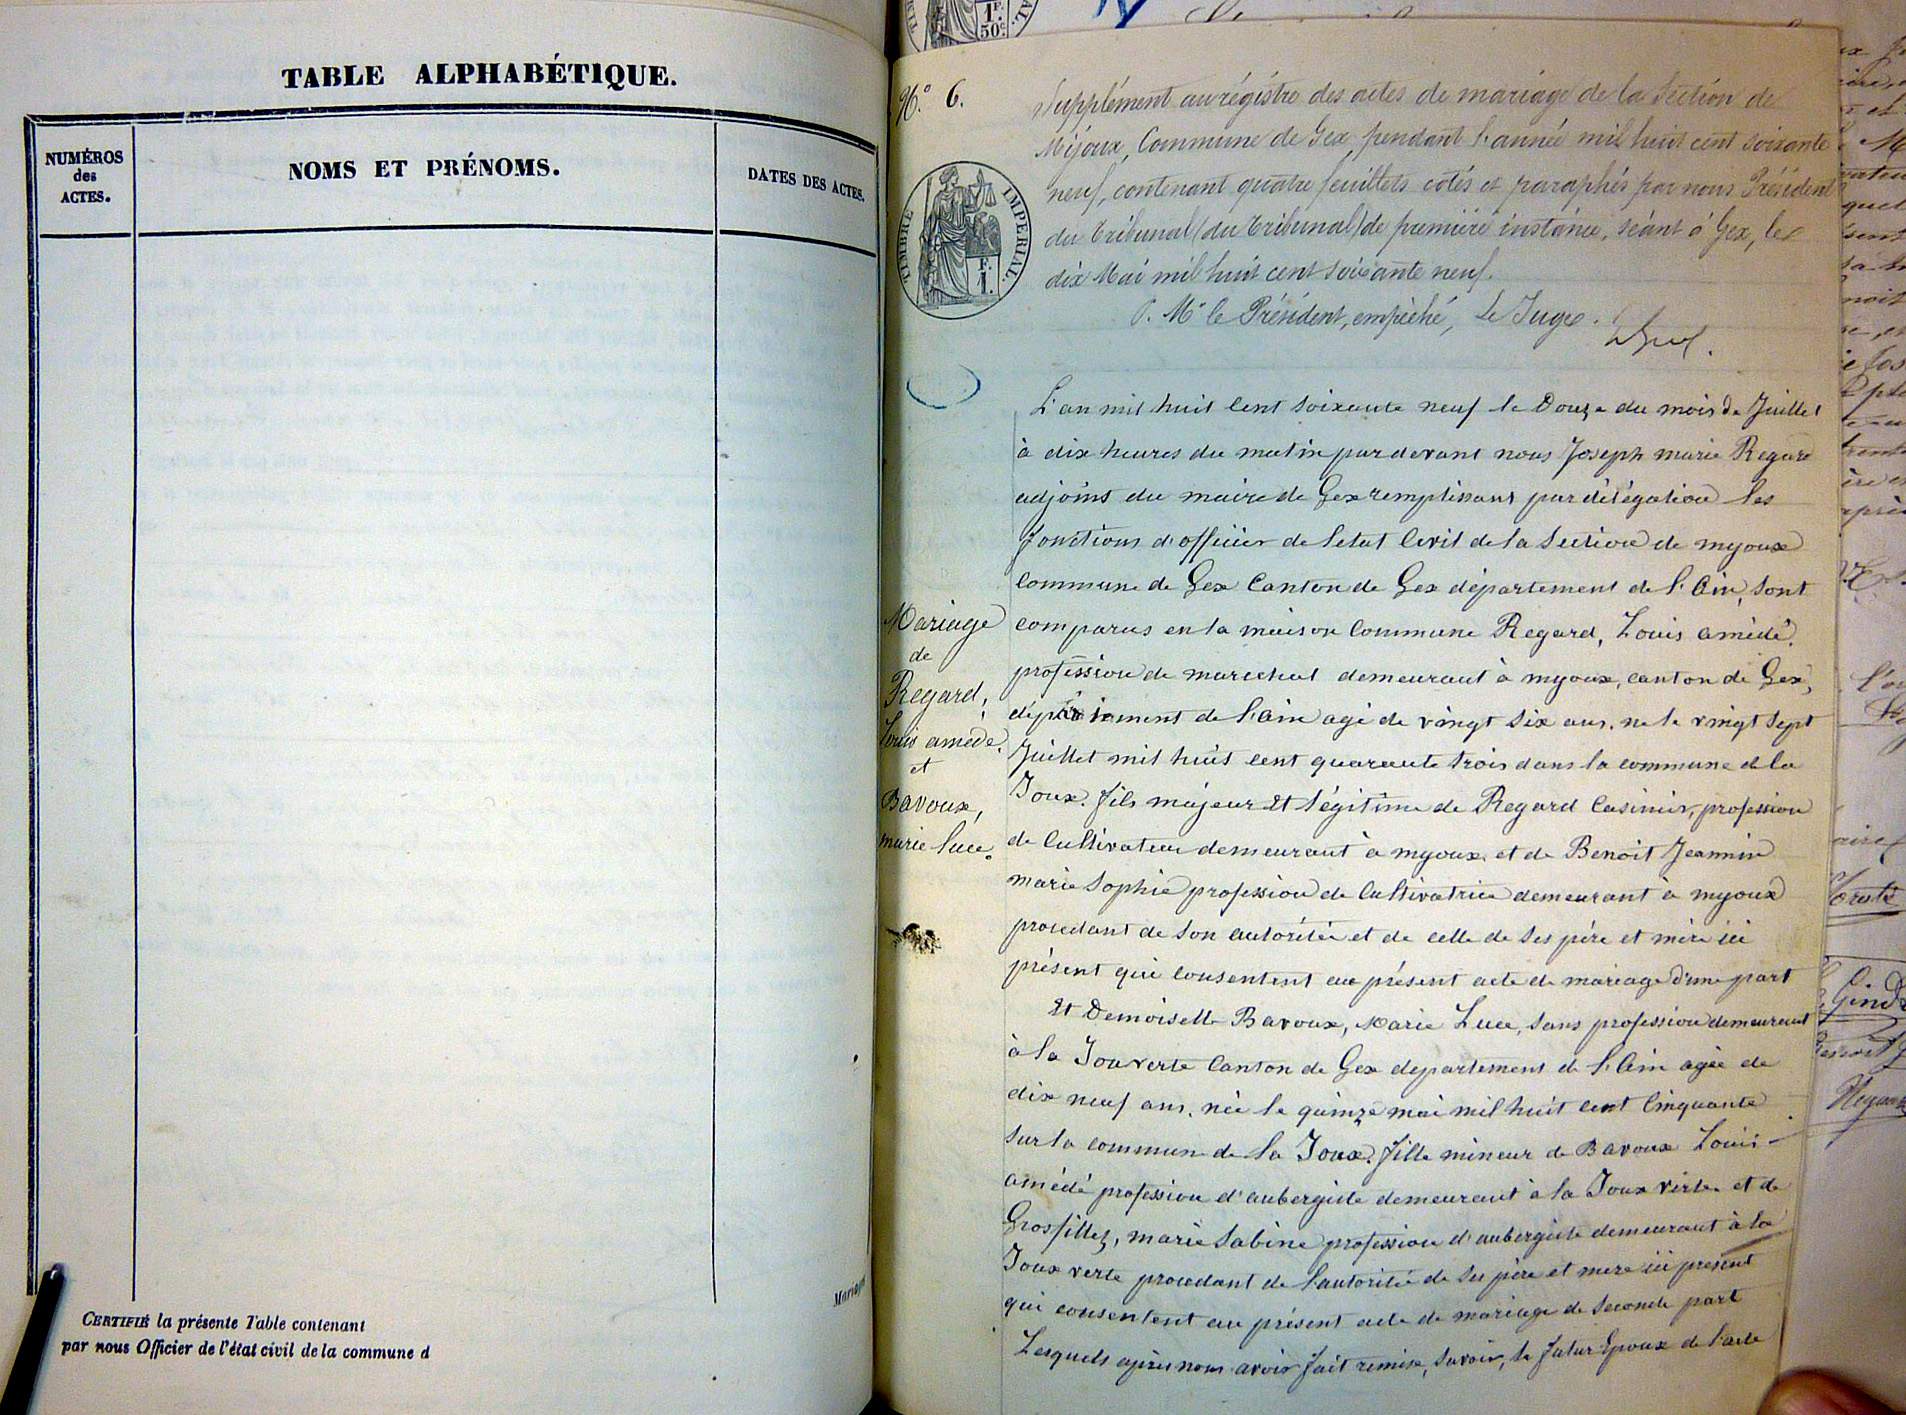 TABLE ALPHABÉTIQUE.
NUMÉROS
des
ACTES.
NOMS ET PRÉNOMS.
DATES DES ACTES.
CERTIFIÉ la présente Table contenant
par nous Officier de l'état civil de la commune d
Mariages
1F.
50c.
N.° 6.
Supplément au régistre des actes de mariage de la Section de
Mijoux, Commune de Gex, pendant l'année mil huit cent soixante
neuf, contenant quatre feuillets cotés et paraphés par nous Président
du tribunal (du tribunal) de première instance, séant à Gex, le
dix Mai mil huit cent soixante neuf.
P. Mr le Président, empêché, Le Juge.
TIMBRE IMPÉRIAL.
F.
1.
L'an mil huit cent soixante neuf le Douze du mois de Juillet
à dix heures du matin par devant nous Joseph marie Regard
adjoint du maire de Gex remplissant par délégation les
fonctions d'officier de letat Civil de la Section de myoux
commune de Gex Canton de Gex département de l'Ain, sont
comparus en la maison Commune Regard, Louis amédé.
profession de marechal demeurant à myoux, canton de Gex,
département de l'ain agé de vingt six ans. ne le vingt sept
Juillet mil huit cent quarante trois dans la commune de la
Joux. fils majeur et légitime de Regard Casimir, profession
de Cultivateur demeurant à myoux et de Benoit Jeannin
marie Sophie profession de Cultivatrice demeurant à myoux
procedant de son autoritée et de celle de ses père et mère ici
présent qui consentent au présent acte de mariage d'une part
Et Demoiselle Bavoux, Marie Luce, sans profession demeurant
à la Jouverte Canton de Gex departement de l'Ain agée de
dix neuf ans. née le quinze mai mil huit cent Cinquante
sur la commune de la Joux. fille mineur de Bavoux Louis
amédé profession d'aubergiste demeurant à la Joux verte et de
Grosfillez, marie Sabine profession d'aubergiste demeurant à la
Joux verte procedant de l'autoritée de ses père et mere ici present
qui consentent au présent acte de mariage de seconde part
Lesquels après nous avoir fait remise, savoir, le futur Epoux de l'acte
Mariage
de
Regard,
Louis amédé.
et
Bavoux,
marie luce.